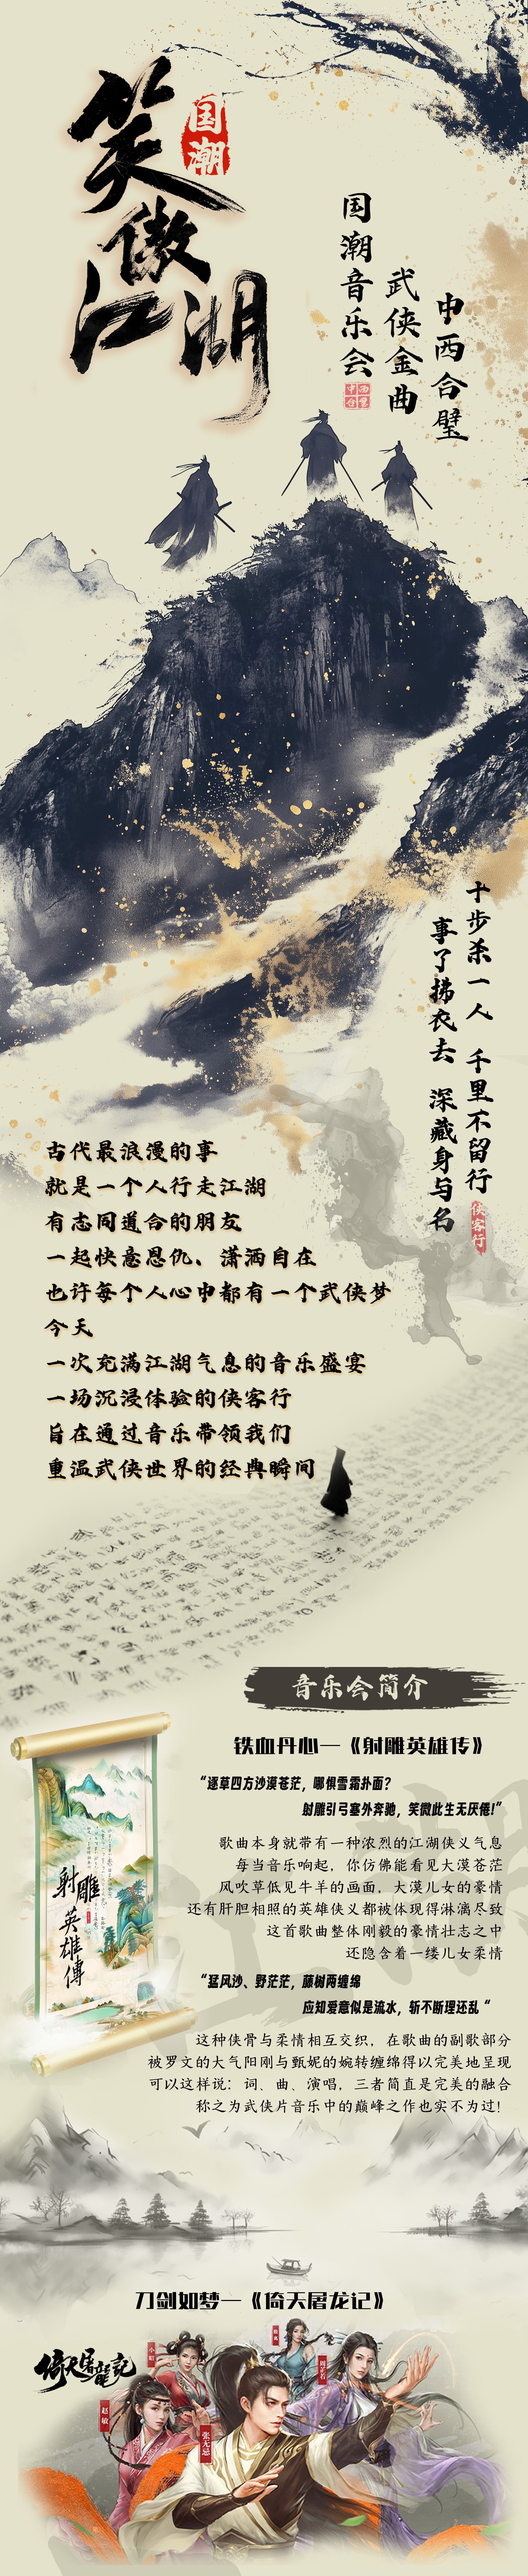 笑傲江湖
国潮
国潮音乐会
武侠金曲
中西合璧
十步杀一人 千里不留行
事了拂衣去 深藏身与名
侠客行
古代最浪漫的事
就是一个人行走江湖
有志同道合的朋友
一起快意恩仇、潇洒自在
也许每个人心中都有一个武侠梦
今天
一次充满江湖气息的音乐盛宴
一场沉浸体验的侠客行
旨在通过音乐带领我们
重温武侠世界的经典瞬间
音乐会简介
铁血丹心—《射雕英雄传》
“逐草四方沙漠苍茫，哪惧雪霜扑面？
射雕引弓塞外奔驰，笑傲此生无厌倦！”
歌曲本身就带有一种浓烈的江湖侠义气息
每当音乐响起，你仿佛能看见大漠苍茫
风吹草低见牛羊的画面，大漠儿女的豪情
还有肝胆相照的英雄侠义都被体现得淋漓尽致
这首歌曲整体刚毅的豪情壮志之中
还隐含着一缕儿女柔情
“猛风沙、野茫茫，藤树两缠绵
应知爱意似是流水，斩不断理还乱“
这种侠骨与柔情相互交织，在歌曲的副歌部分
被罗文的大气阳刚与甄妮的婉转缠绵得以完美地呈现
可以这样说：词、曲、演唱，三者简直是完美的融合
称之为武侠片音乐中的巅峰之作也实不为过！
射雕英雄傳
江湖
刀剑如梦—《倚天屠龙记》
倚天屠龍記
小昭
赵敏
张无忌
周芷若